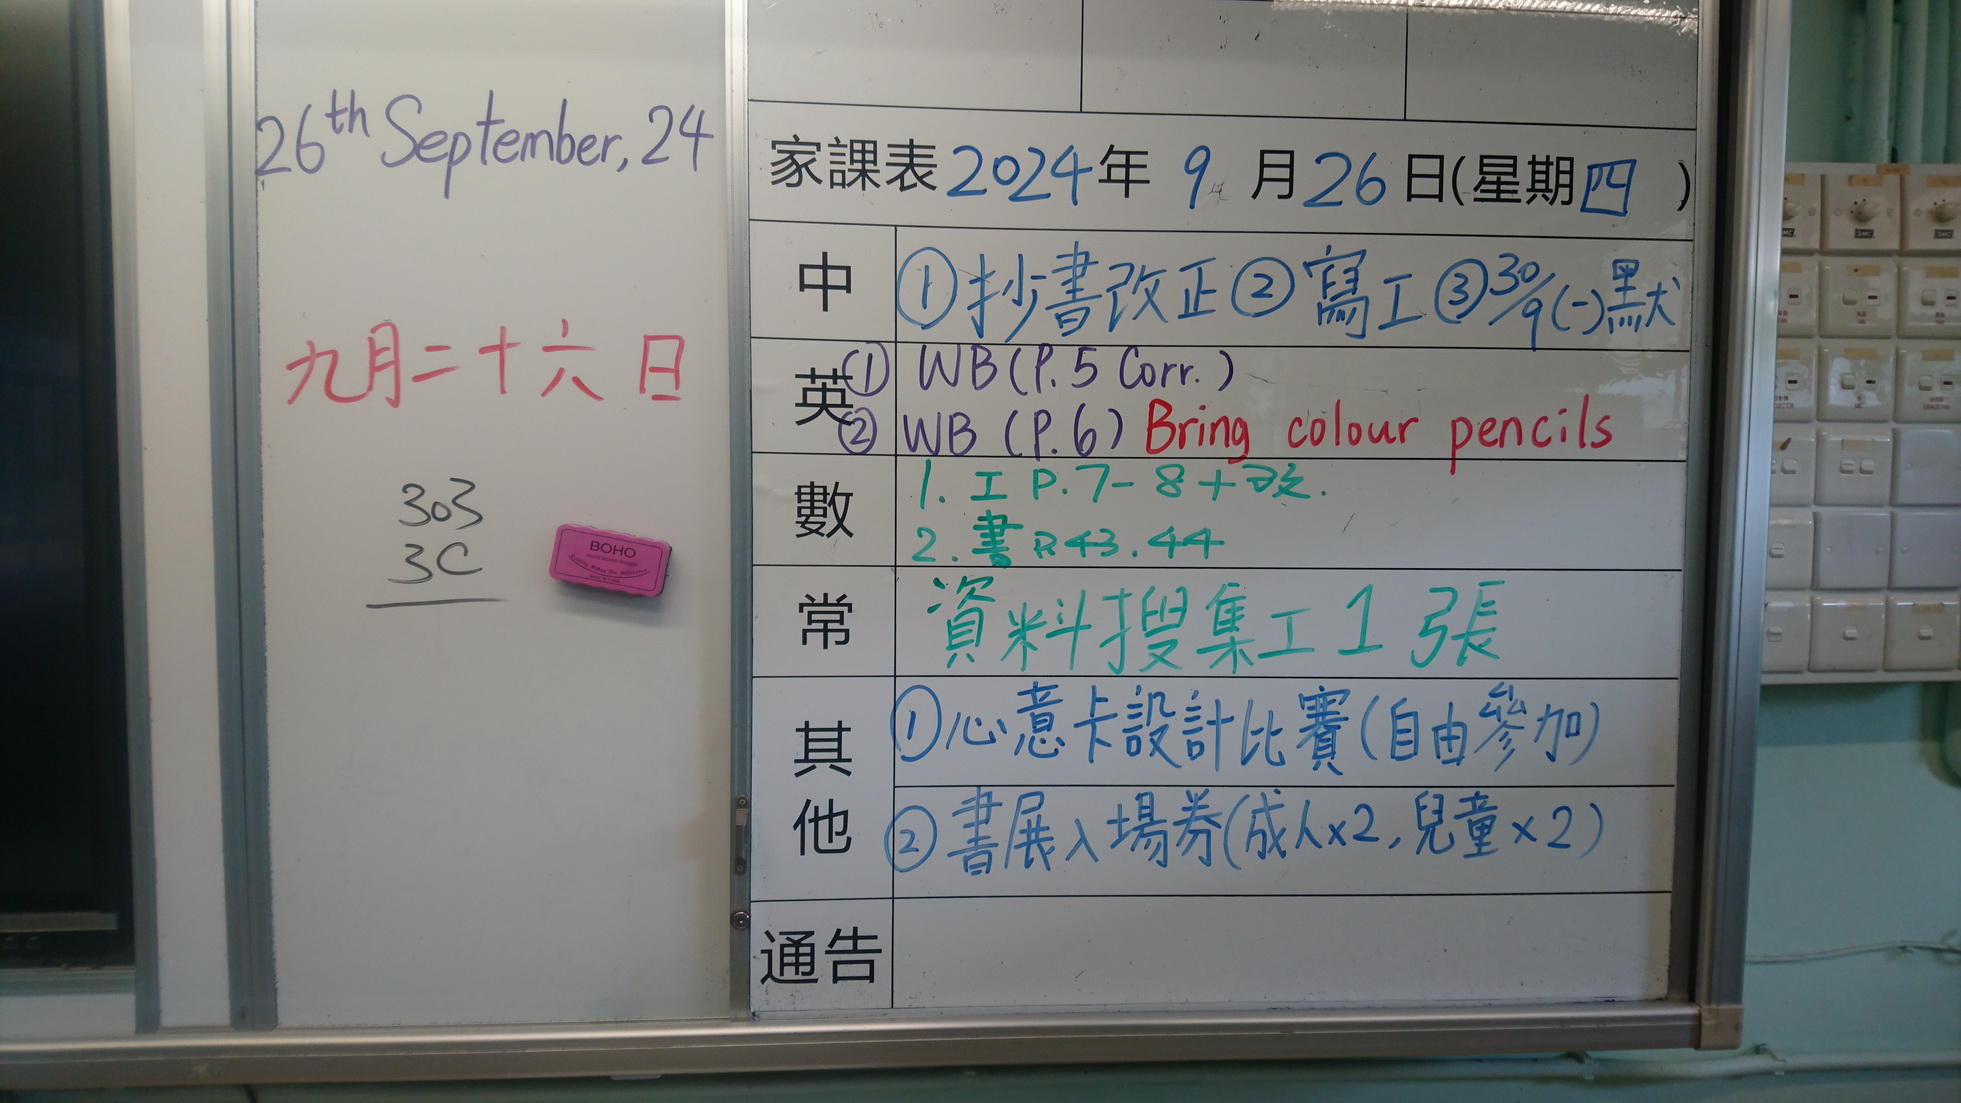 26th September, 24
九月二十六日
303
3C
BOHO
家課表2024年 9 月26日(星期四 )
中 ①抄書改正②寫工③30/9(一)默
英 ① WB(P.5 Corr.)
② WB (P.6) Bring colour pencils
數 1. 工 P.7-8+改.
2. 書P.43.44
常 資料搜集工1張
其他 ①心意卡設計比賽(自由參加)
②書展入場券(成人x2,兒童x2)
通告